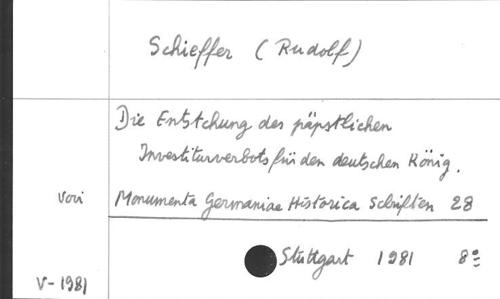 Schieffer (Rudolf)
Die Entstehung des päpstlichen
Investiturverbots für den deutschen König.
Vori
Monumenta Germaniae Historica Schriften 28
Stuttgart 1981 8º
V-1981